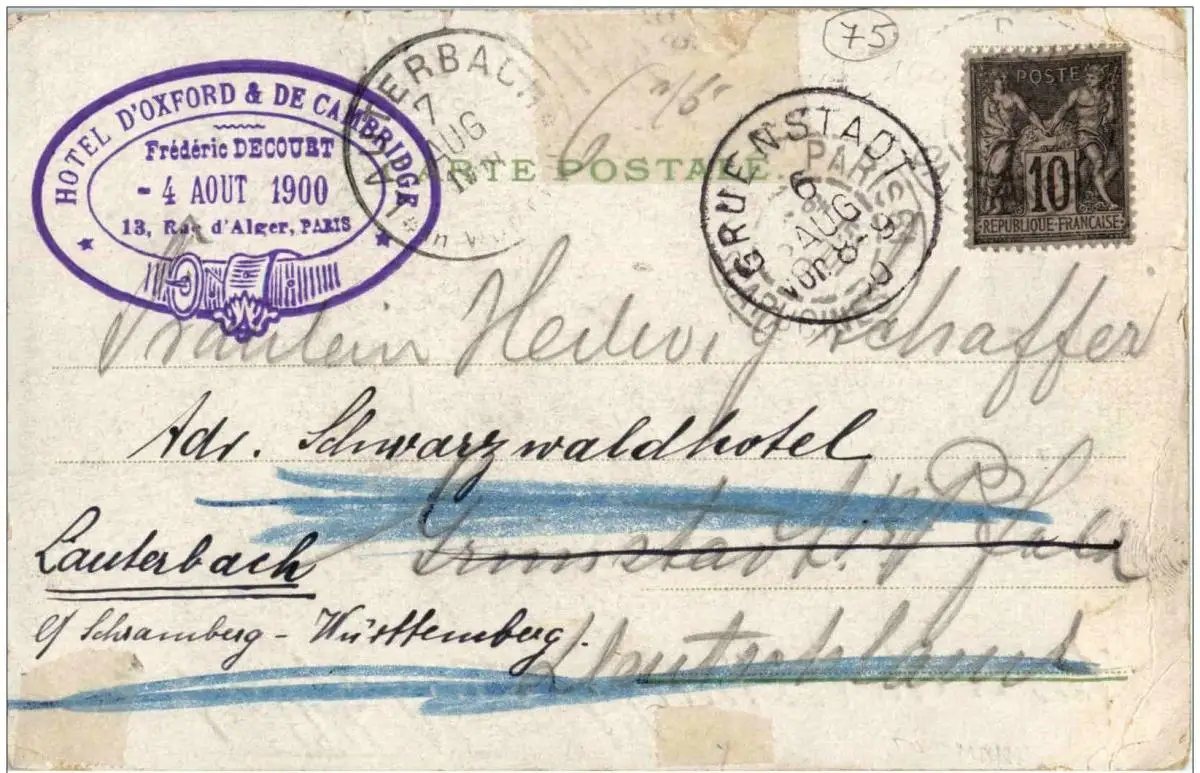 75
HOTEL D'OXFORD & DE CAMBRIDGE
Frédéric DECOUET
- 4 AOUT 1900
13, Rue d'Alger, PARIS
7
AUG
CARTE POSTALE.
GRUENSTADT
6
AUG
Vor. 8-9
PARIS
POSTE
10
REPUBLIQUE FRANÇAISE
Fräulein Hedwig Schaffer
Adr. Schwarzwaldhotel
Grünstadt Pfalz
Lauterbach
Schramberg - Württemberg.
Deutschland